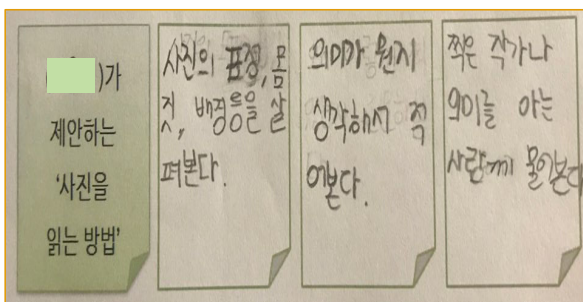 ( )가
제안하는
'사진을
읽는 방법'
사진의 표정, 몸
짓, 배경등을 살
펴본다.
의미가 뭔지
생각해서 적
어본다.
찍은 작가나
의미를 아는
사람께 물어본다